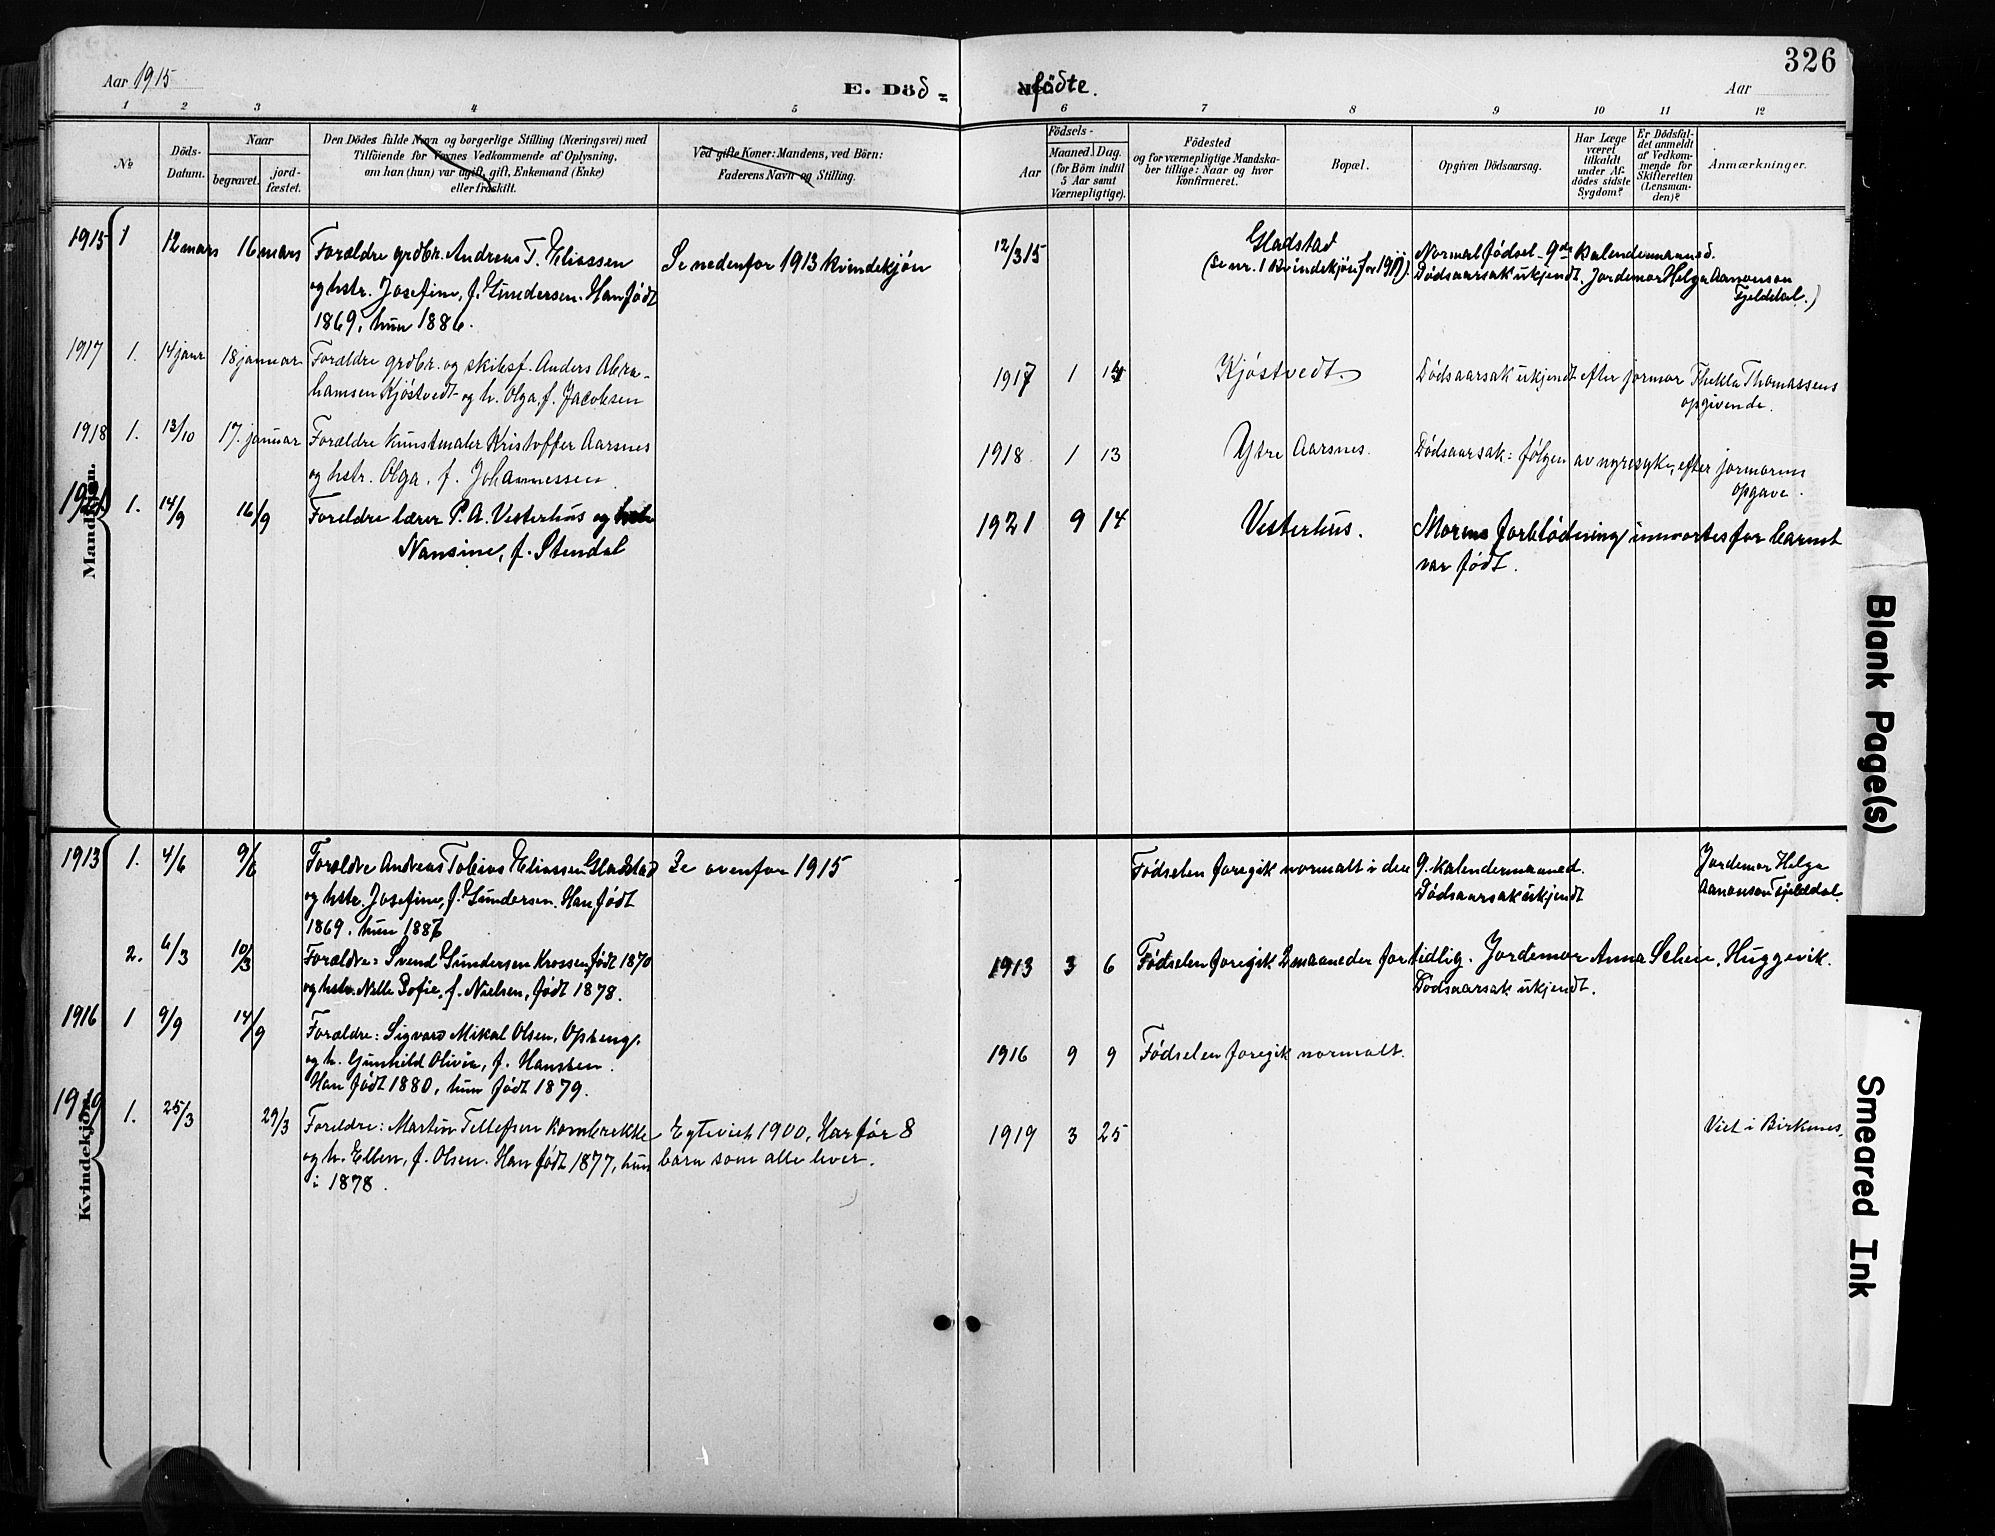 326
Aar 1915
E. Död=
födte.
Aar
1 2 3 4 5 6 7 8 9 10 11 12
№
Döds-
Datum.
Naar
begravet.
jord-
fæstet.
Den Dödes fulde Navn og borgerlige Stilling (Næringsvei) med
Tilföiende for Voxnes Vedkommende af Oplysning,
om han (hun) var ugift, gift, Enkemand (Enke)
eller fraskilt.
Ved gifte Koner: Mandens, ved Börn:
Faderens Navn og Stilling.
Födsels-
Aar
Maaned.
Dag.
(for Börn indtil
5 Aar samt
Værnepligtige).
Födested
og for værnepligtige Mandska-
ber tillige: Naar og hvor
konfirmeret.
Bopæl.
Opgiven Dödsaarsag.
Har Læge
været
tilkaldt
under Af-
dödes sidste
Sygdom?
Er Dödsfal-
det anmeldt
af Vedkom-
mende for
Skifteretten
(Lensman-
den)?
Anmærkninger.
Mandkjön.
1915 1 12 mars 16 mars Forældre grdbr. Andreas T. Eliassen
og hstr. Josefine, f. Gundersen. Han født
1869, hun 1886.
Se nedenfor 1913 kvindekjøn
12/3 15
Gladstad
(se nr. 1 Kvindekjøn for 1913).
Normal fødsel - 9de kalendermaaned.
Dødsaarsak ukjendt. Jordemor Helga Aanonson
Fjeldal.)
1917 1. 14 janr 18 januar Forældre grdbr. og skibsf. Anders Abra-
hamsen Kjøstvedt og h. Olga, f. Jacobsen
1917 1 14 Kjøstvedt. Dødsaarsak ukjendt efter jormor Thekla Thomassens
opgivende.
1918 1. 13/10 17. januar Forældre kunstmaler Kristoffer Aarsnes
og hstr. Olga, f. Johannessen
1918 1 13 Ytre Aarsnes. Dødsaarsak: følgen av nyresyke, efter jormorens
opgave.
1921. 1. 14/9 16/9 Foreldre lærer P. A. Vesterhus og hstr
Nansine, f. Stendal
1921 9 14 Vesterhus. Morens forblødning innvortes før barnet
var født.
Kvindekjön.
1913 1. 4/6 9/6 Forældre Andreas Tobias Eliassen Gladstad
og hstr. Josefine, f. Gundersen. Han født
1869, hun 1886
Se ovenfor 1915
Fødselen foregik normalt i den 9. kalendermaaned.
Dødsaarsak ukjendt
Jordemor Helga
Aanonson Fjeldal.
2. 6/3 10/3 Forældre: Svend Gundersen Krossen, født 1870
og hstr. Nelle Sofie, f. Nielsen, født 1878.
1913 3 6 Fødselen foregik 2 maaneder for tidlig. Jordemor Anna Scheie, Huggevik.
Dødsaarsak ukjendt.
1916 1 9/9 14/9 Forældre: Sigvard Mikal Olsen, Opheng,
og h. Gunhild Olivie, f. Hanssen.
Han født 1880, hun født 1879.
1916 9 9 Fødselen foregik normalt.
1919 1. 25/3 29/3 Foreldre: Martin Tellefsen Kambrekke
og h. Ellen, f. Olsen. Han født 1877, hun
i 1878.
Egteviet 1900, Har før 8
barn som alle lever.
1919 3 25
Viet i Birkenes.
Blank Page(s)
Smeared Ink